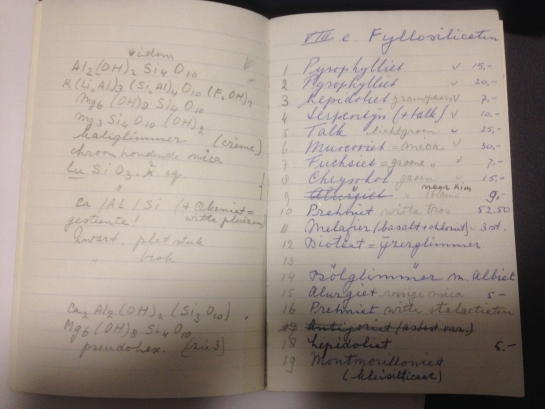 idem
Al2(OH)2 Si4 O10
K(Li,Al)3 (Si,Al)4 O10 (F,OH)2
Mg6 (OH)8 Si4O10
Mg3 Si4O10 (OH)2
Kaliglimmer (crème)
chroomhoudende mica
Cu SiO3. aq
"
Ca/Al/Si (+ =
gesteente! witte
Kwart. plat stuk
" brok
Ca2 Al2(OH)2 (Si3O10).
Mg6(OH)8 Si4O10
pseudohex. (zie 3)
VIII e. Fyllosilicaten
1 Pyrophylliet v 15,-
2 Pyrophylliet v 20,-
3 Lepidoliet v 7,-
4 Serpentijn (+talk) v 10,-
5 Talk lichtgroen v 25,-
6 Muscoviet = mica v 30,-
7 Fuchsiet = groene " v 7,-
8 Chrysokol groen v 15,-
9 Alurgiet " 9,-
10 Prehniet witte tros 52.50
11 Melafier (basalt + chloriet). 3 st.
12 Biotiet = Yzerglimmer
13
14 Gölglimmer m. Albiet
15 Alurgiet mica 5-
16 Prehniet with stalactieten
17 Antigoriet (asbest var.)
18 Lepidoliet 5.-
19 Montmorilloniet
(-kleisilicaat)